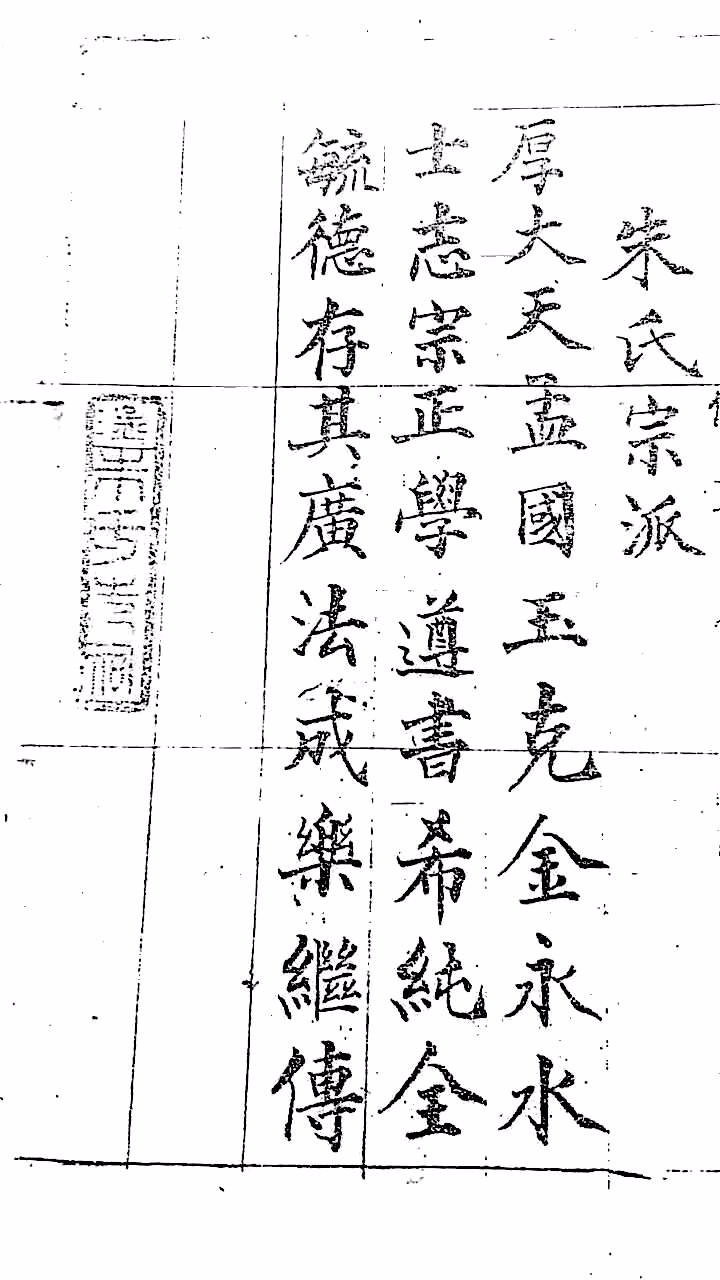 朱氏宗派
厚大天孟國玉克金永水
士志宗正學遵書希純全
毓德存其廣法成樂繼傳